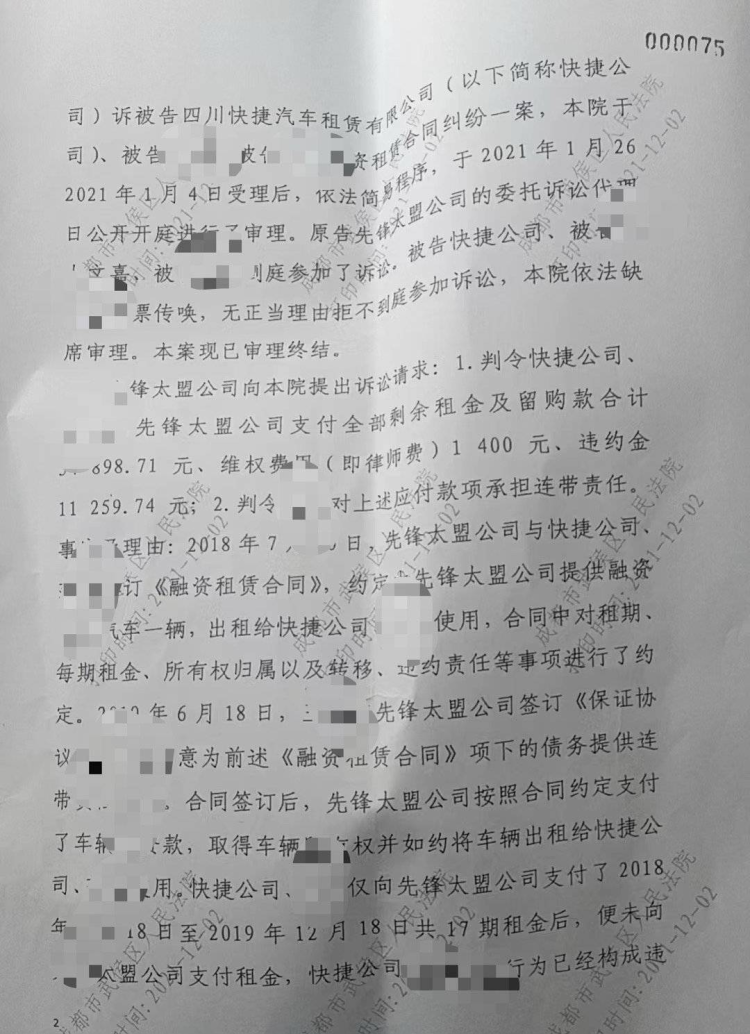 000075
司）诉被告四川快捷汽车租赁有限公司（以下简称快捷公
司）、被告 被 资租赁合同纠纷一案，本院于
2021年1月4日受理后，依法简易程序，于2021年1月26
日公开开庭进行了审理。原告先锋太盟公司的委托诉讼代理
文嘉、被 到庭参加了诉讼。被告快捷公司、被告
票传唤，无正当理由拒不到庭参加诉讼，本院依法缺
席审理。本案现已审理终结。
锋太盟公司向本院提出诉讼请求：1.判令快捷公司、
先锋太盟公司支付全部剩余租金及留购款合计
698.71元、维权费用（即律师费）1 400元、违约金
11 259.74元；2.判令 对上述应付款项承担连带责任。
事 理由：2018年7 日，先锋太盟公司与快捷公司、
订《融资租赁合同》，约定 先锋太盟公司提供融资
汽车一辆，出租给快捷公司 使用，合同中对租期、
每期租金、所有权归属以及转移、违约责任等事项进行了约
定。 年6月18日， 先锋太盟公司签订《保证协
议 意为前述《融资租赁合同》项下的债务提供连
带 。合同签订后，先锋太盟公司按照合同约定支付
了车辆 款，取得车辆 权并如约将车辆出租给快捷公
司、 用。快捷公司、 仅向先锋太盟公司支付了2018
年 18日至2019年12月18日共17期租金后，便未向
太盟公司支付租金，快捷公司 行为已经构成违
2
成都市武侯区人民法院
打印时间：2021-12-02